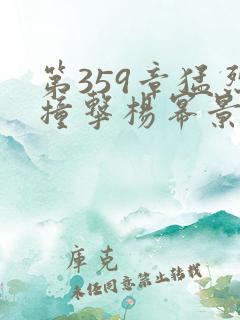 第359章猛烈
撞撃楊幂景
庫克
未经同意禁止转载